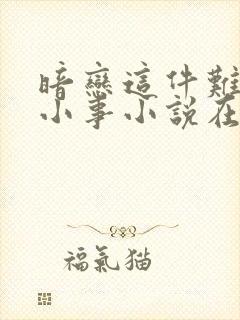 暗戀這件難
小事小說在
福氣猫